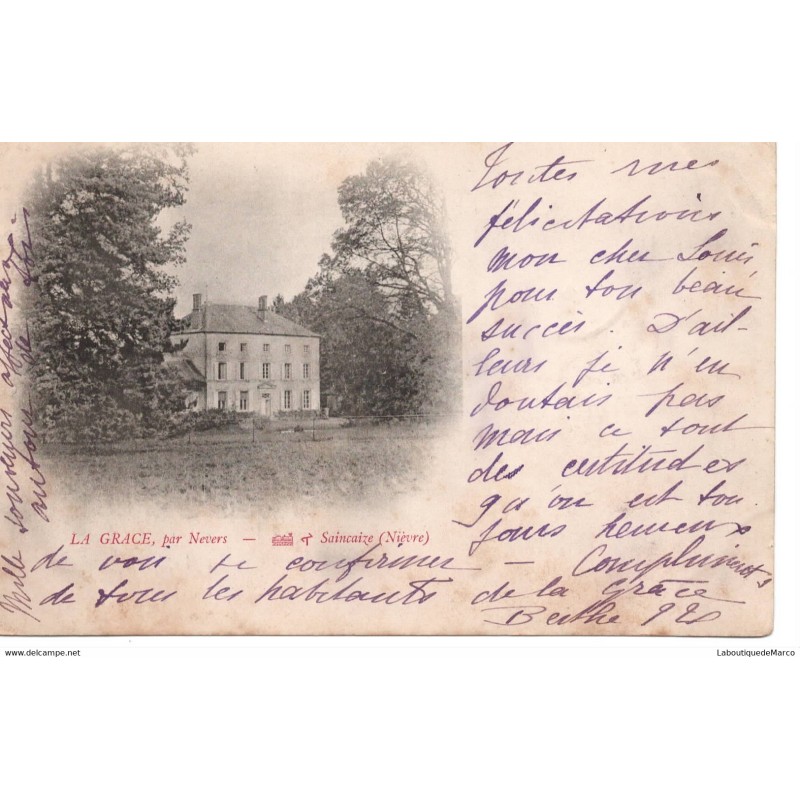 Toutes mes
félicitations
mon cher Louis
pour ton beau
succès. D'ail-
leurs je n'en
doutais pas
mais ce sont
des certitudes
qu'on est tou
jours heureux
de voir se confirmer — Compliments
de tous les habitants de la Grâce
Berthe
Mille souvenirs affectueux
autour de toi
LA GRACE, par Nevers — Saincaize (Nièvre)
www.delcampe.net
LaboutiquedeMarco